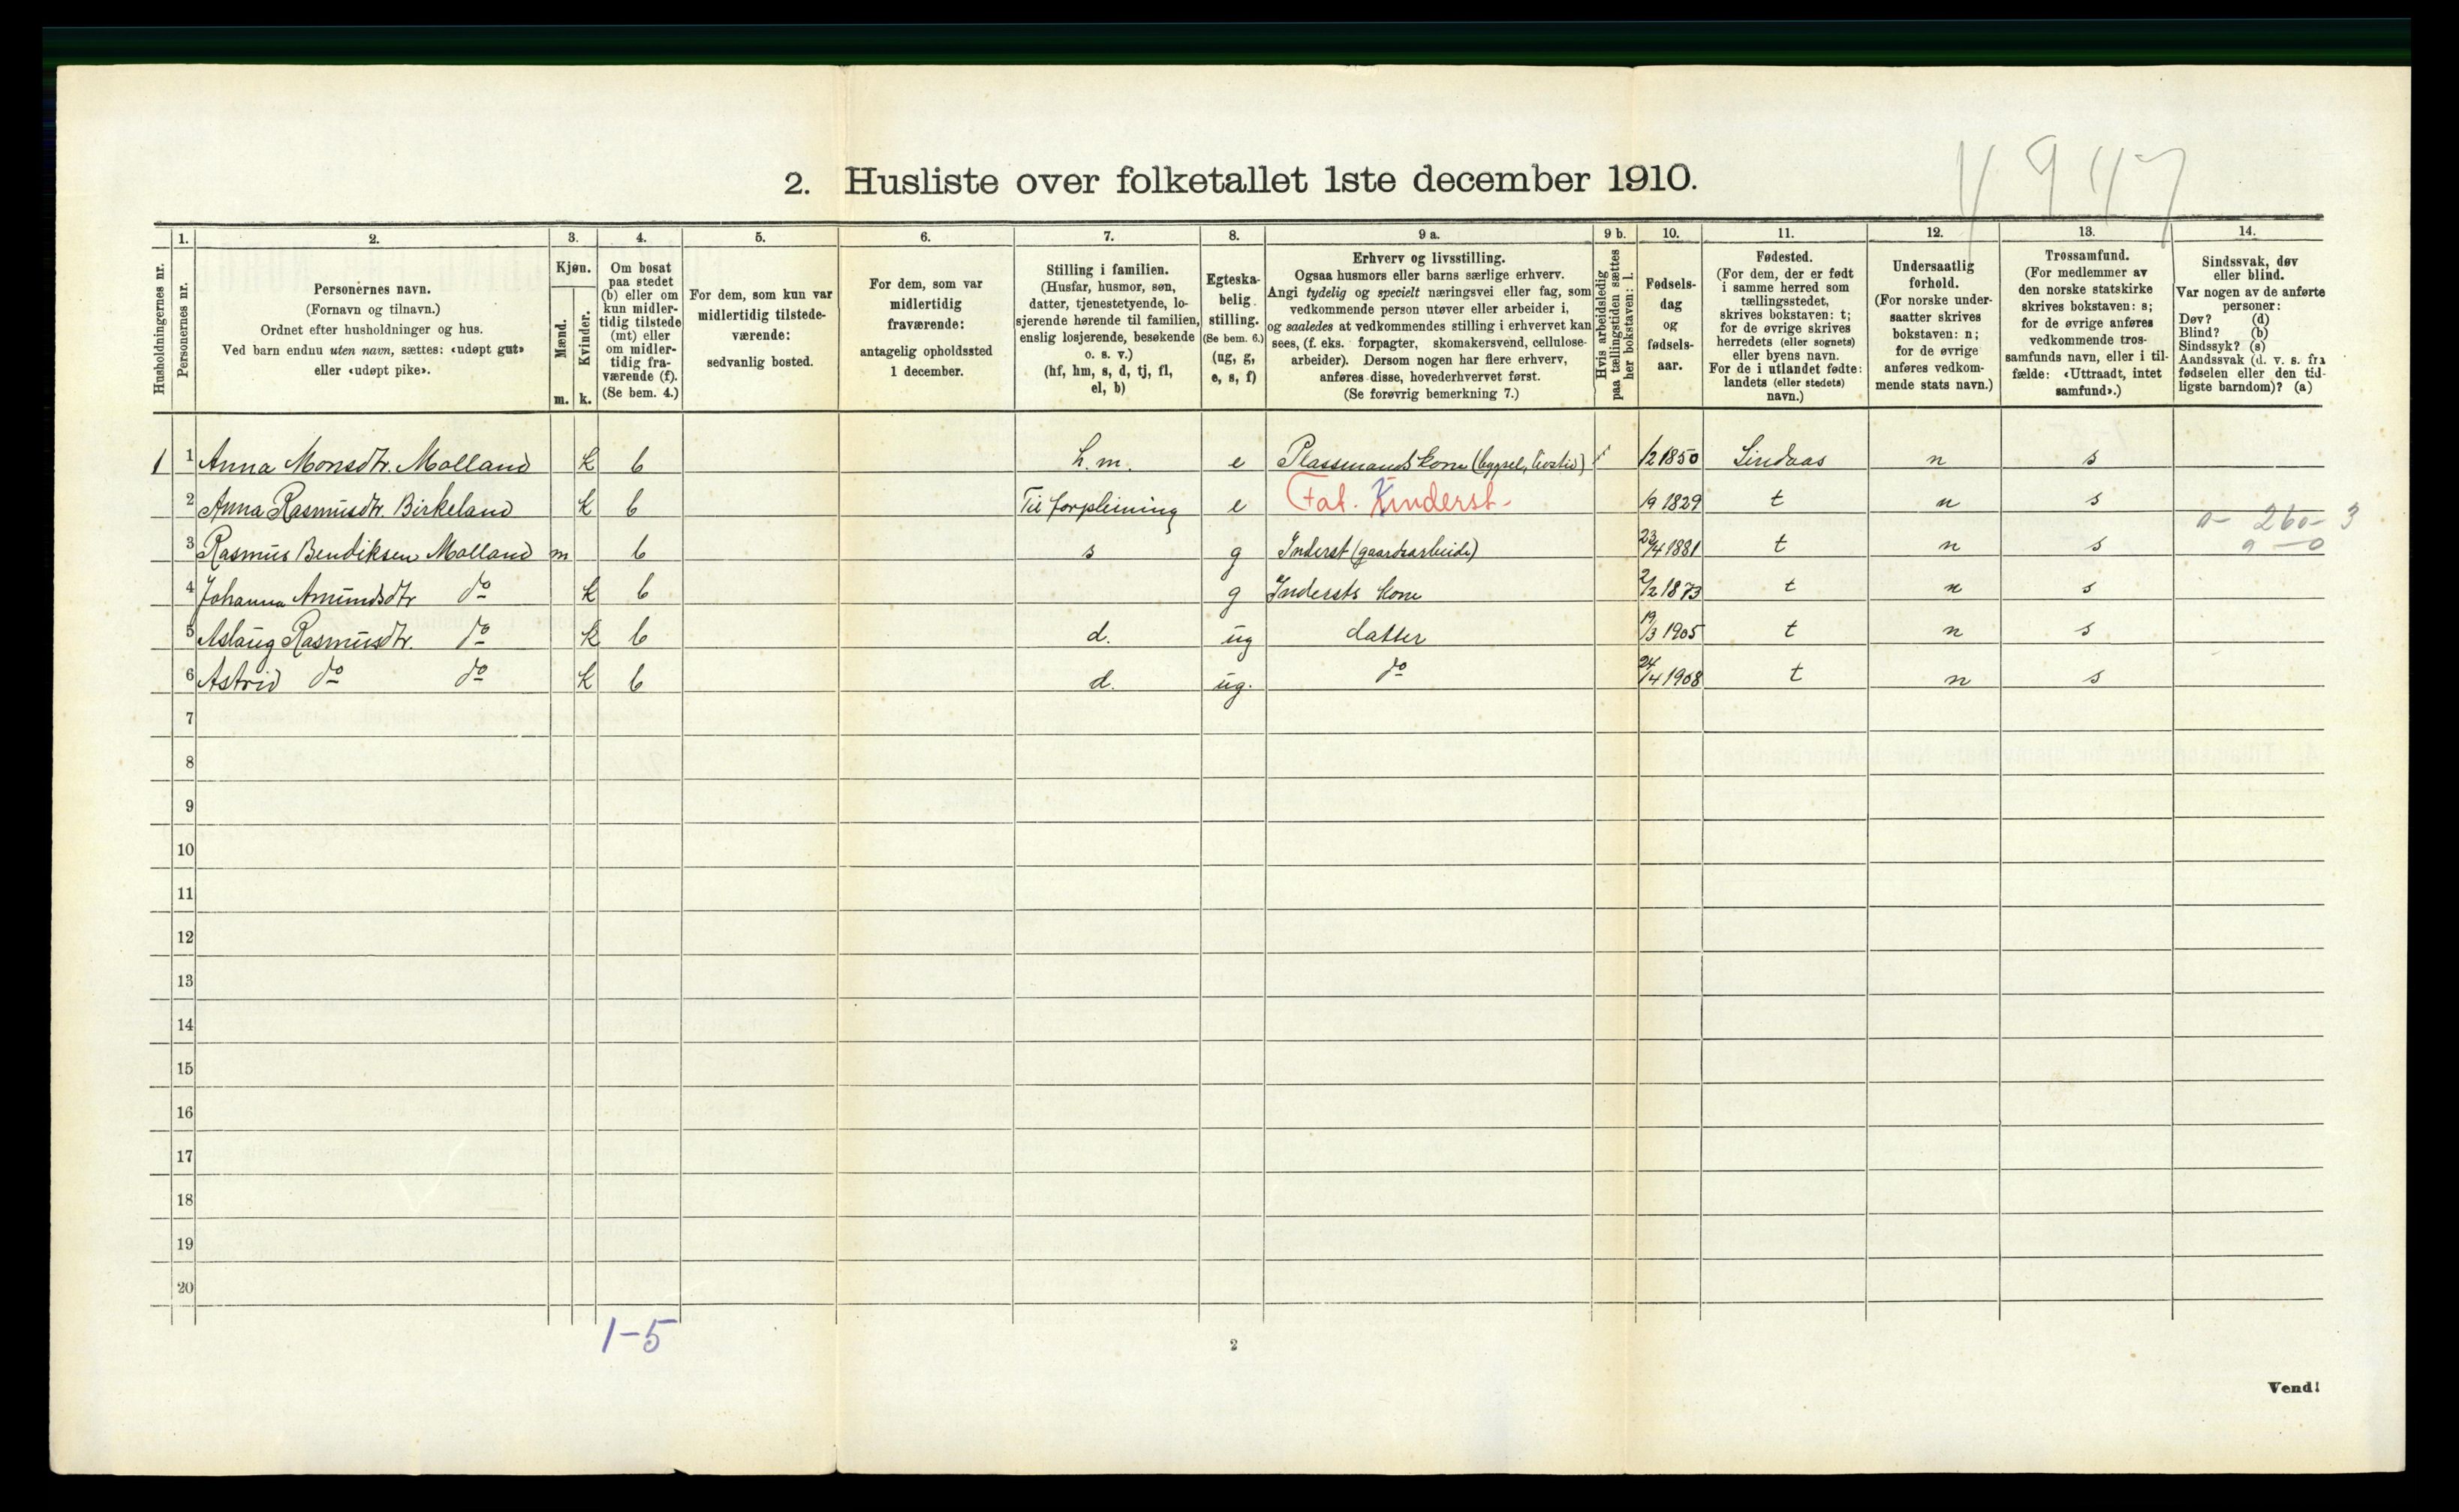 4947
2. Husliste over folketallet 1ste december 1910.
Husholdningernes nr.
1.
Personernes nr.
2.
Personernes navn.
(Fornavn og tilnavn.)
Ordnet efter husholdninger og hus.
Ved barn endnu uten navn, sættes: «udøpt gut»
eller «udøpt pike».
3.
Kjøn.
Mænd.
Kvinder.
m. k.
4.
Om bosat
paa stedet
(b) eller om
kun midler-
tidig tilstede
(mt) eller
om midler-
tidig fra-
værende (f).
(Se bem. 4.)
5.
For dem, som kun var
midlertidig tilstede-
værende:
sedvanlig bosted.
6.
For dem, som var
midlertidig
fraværende:
antagelig opholdssted
1 december.
7.
Stilling i familien.
(Husfar, husmor, søn,
datter, tjenestetyende, lo-
sjerende hørende til familien,
enslig losjerende, besøkende
o. s. v.)
(hf, hm, s, d, tj, fl,
el, b)
8.
Egteska-
belig
stilling.
(Se bem. 6.)
(ug, g,
e, s, f)
9 a.
Erhverv og livsstilling.
Ogsaa husmors eller barns særlige erhverv.
Angi tydelig og specielt næringsvei eller fag, som
vedkommende person utøver eller arbeider i,
og saaledes at vedkommendes stilling i erhvervet kan
sees, (f. eks. forpagter, skomakersvend, cellulose-
arbeider). Dersom nogen har flere erhverv,
anføres disse, hovederhvervet først.
(Se forøvrig bemerkning 7.)
9 b.
Hvis arbeidsledig
paa tællingstiden sættes
her bokstaven: l.
10.
Fødsels-
dag
og
fødsels-
aar.
11.
Fødested.
(For dem, der er født
i samme herred som
tællingsstedet,
skrives bokstaven: t;
for de øvrige skrives
herredets (eller sognets)
eller byens navn.
For de i utlandet fødte:
landets (eller stedets)
navn.)
12.
Undersaatlig
forhold.
(For norske under-
saatter skrives
bokstaven: n;
for de øvrige
anføres vedkom-
mende stats navn.)
13.
Trossamfund.
(For medlemmer av
den norske statskirke
skrives bokstaven: s;
for de øvrige anføres
vedkommende tros-
samfunds navn, eller i til-
fælde: «Uttraadt, intet
samfund».)
14.
Sindssvak, døv
eller blind.
Var nogen av de anførte
personer:
Døv? (d)
Blind? (b)
Sindssyk? (s)
Aandssvak (d. v. s. fra
fødselen eller den tid-
ligste barndom)? (a)
1 1 Anna Monsdtr. Molland k b h.m. e Plassmands kone (bygsel, livstid) 1/2 1850 Lindaas n s
2 Anna Rasmusdtr. Birkeland k b Til forpleining e Fat. Kinderst. 1/9 1829 t n s
0- 260- 3
3 Rasmus Bendiksen Molland m b s g Inderst (gaardsarbeide) 23/4 1881 t n s 0 - 0
4 Johanna Amundsdtr do k b g Indersts kone 2/2 1873 t n s
5 Aslaug Rasmusdtr. do k b d. ug datter 19/3 1905 t n s
6 Astrid do do k b d. ug. do 24/4 1908 t n s
7
8
9
10
11
12
13
14
15
16
17
18
19
20
1-5
2
Vend!